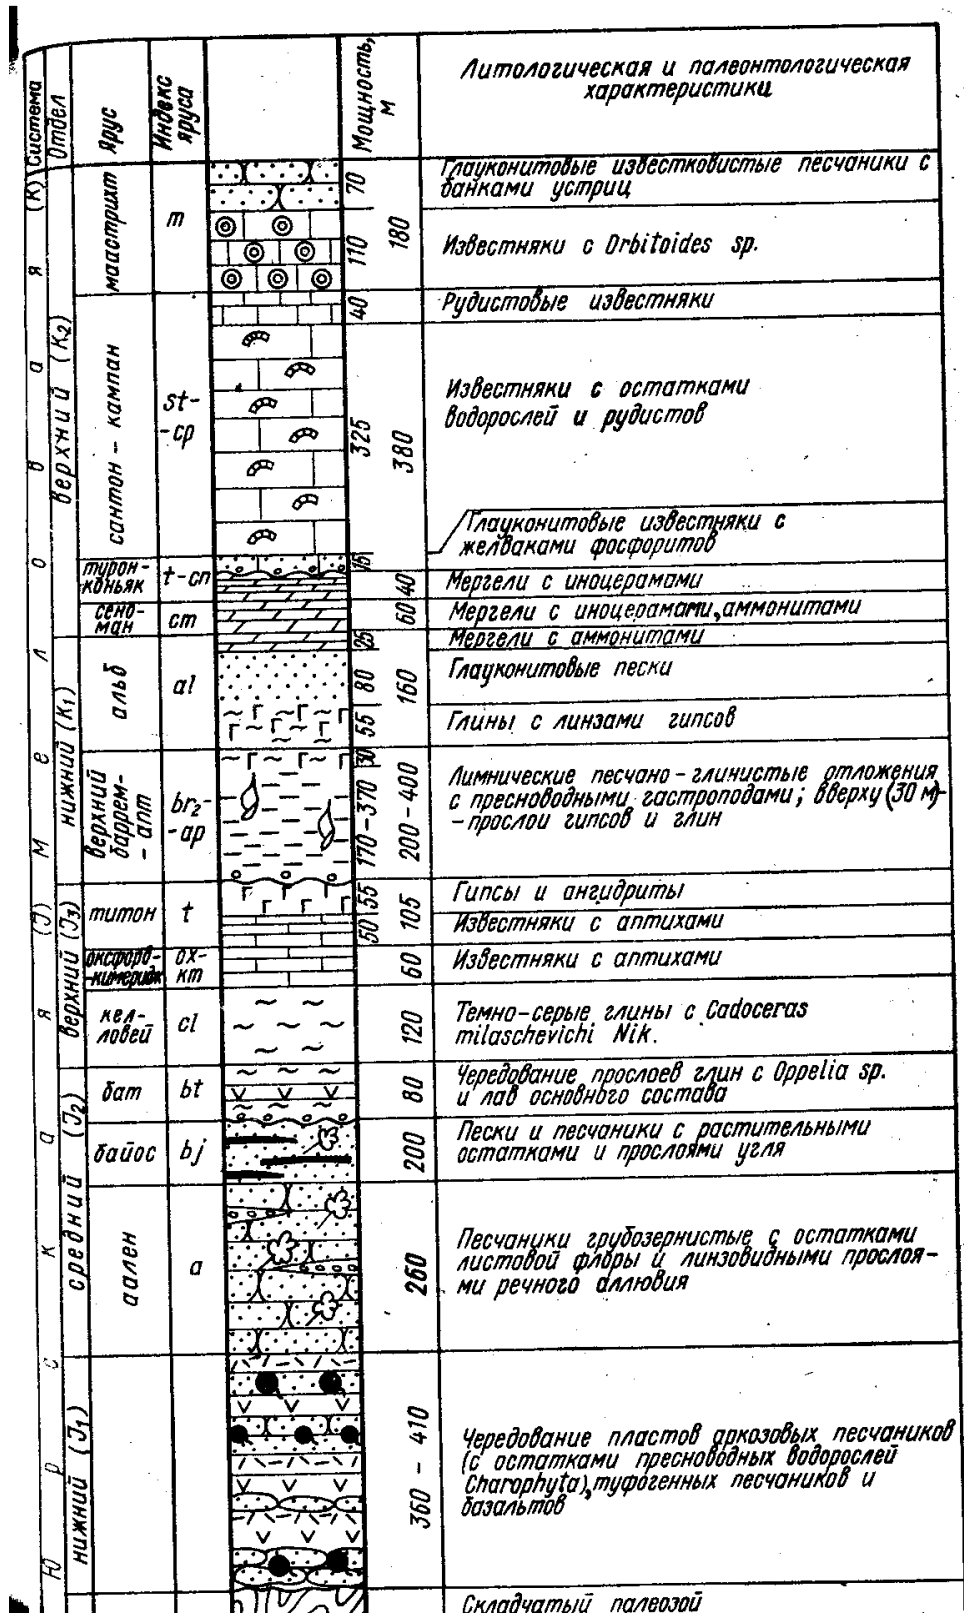 Система
Отдел
Ярус
Индекс
яруса
Мощность,
м
Литологическая и палеонтологическая
характеристика
Меловая (К)
верхний (К2)
маастрихт
m
70
110
180
Глауконитовые известковистые песчаники с
банками устриц
Известняки с Orbitoides sp.
сантон – кампан
st-
-cp
40
325
15
380
Рудистовые известняки
Известняки с остатками
водорослей и рудистов
Глауконитовые известняки с
желваками фосфоритов
турон-
коньяк
t-cn
40
Мергели с иноцерамами
сено-
ман
cm
60
Мергели с иноцерамами, аммонитами
нижний (К1)
альб
al
25
80
55
160
Мергели с аммонитами
Глауконитовые пески
Глины с линзами гипсов
верхний
баррем-
- апт
br2-
-ap
30
170-370
200-400
Лимнические песчано-глинистые отложения
с пресноводными гастроподами; вверху (30 м)-
-прослои гипсов и глин
Юрская (J)
верхний (J3)
титон
t
55
50
105
Гипсы и ангидриты
Известняки с аптихами
оксфорд-
-кимеридж
ox-
km
60
Известняки с аптихами
кел-
ловей
cl
120
Темно-серые глины с Cadoceras
milaschevichi Nik.
средний (J2)
бат
bt
80
Чередование прослоев глин с Oppelia sp.
и лав основного состава
байос
bj
200
Пески и песчаники с растительными
остатками и прослоями угля
аален
a
260
Песчаники грубозернистые с остатками
листовой флоры и линзовидными прослоя-
ми речного аллювия
нижний (J1)
360 - 410
Чередование пластов аркозовых песчаников
(с остатками пресноводных водорослей
Charophyta), туфогенных песчаников и
базальтов
Складчатый палеозой